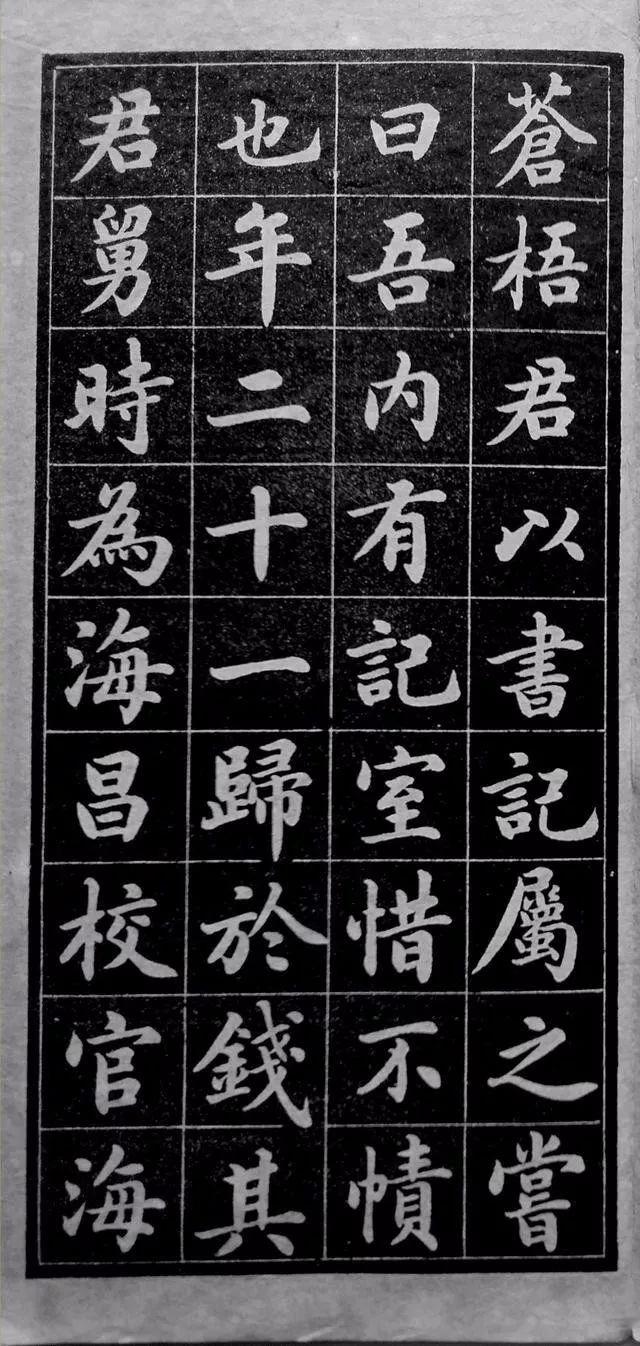 蒼梧君以書記屬之嘗
曰吾内有記室惜不幘
也年二十一歸於錢其
君舅時為海昌校官海